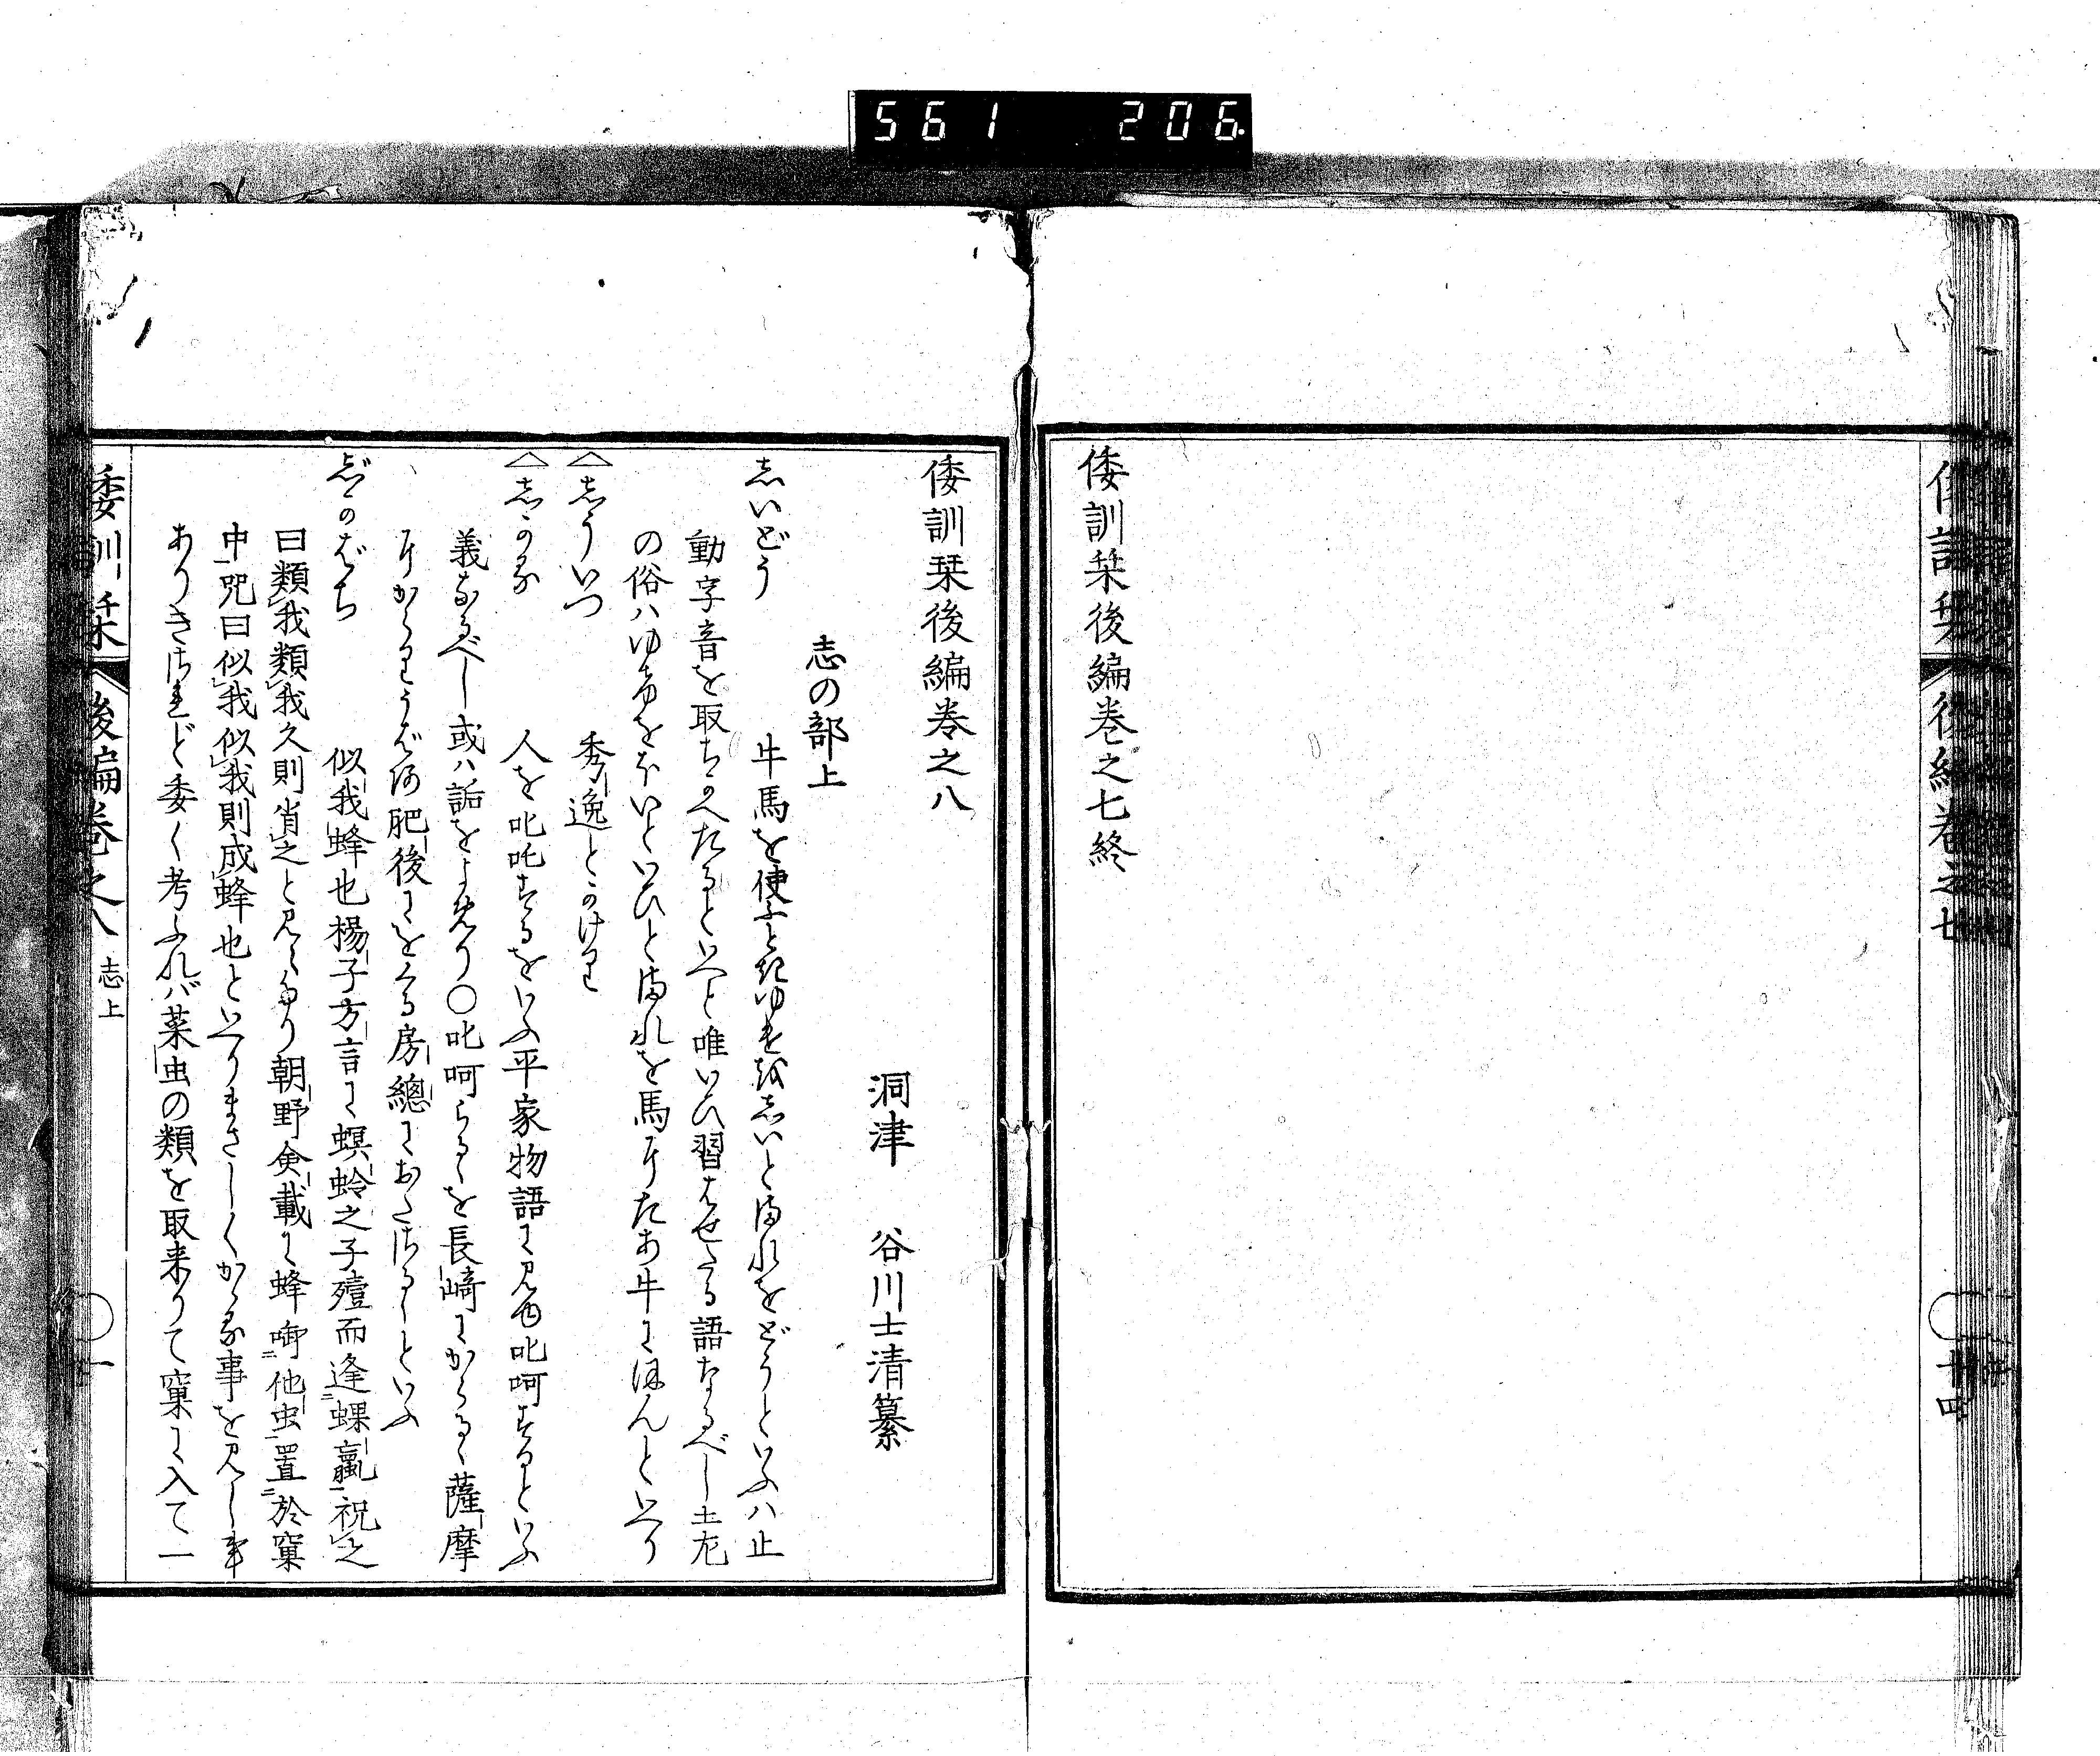 561 206
倭訓栞 後編卷之七 廿四
倭訓栞後編卷之七終
倭訓栞後編卷之八
洞津 谷川士清纂
志の部上
志いどう 牛馬を使ふときゆけを志いと満れをどうといふハ止
動字音を取ちのへたるといへと唯いひ習ハせたる語なるべし土左
の俗ハゆけをおいといひと満れを馬にたあ牛にほんといへり
△志ういつ 秀逸とかけり
△志かる 人を叱咤するをいふ平家物語に見ゆ叱呵するといふ
義なるべし或ハ詬をよめり○叱呵らるゝを長崎にかゝるゝ薩摩
にからうバ河肥後にをくる房總におさるゝといふ
じがのばち 似我蜂也楊子方言に螟蛉之子殪而逢蜾蠃祝之
曰類我類我久則肖之と見えたり朝野僉載に蜂啣他虫置於窠
中咒曰似我似我則成蜂也といへりまさしくかゝる事を見し事
ありきされど委く考ふれバ菜虫の類を取来りて窠に入て一
倭訓栞 後編卷之八 志上 一